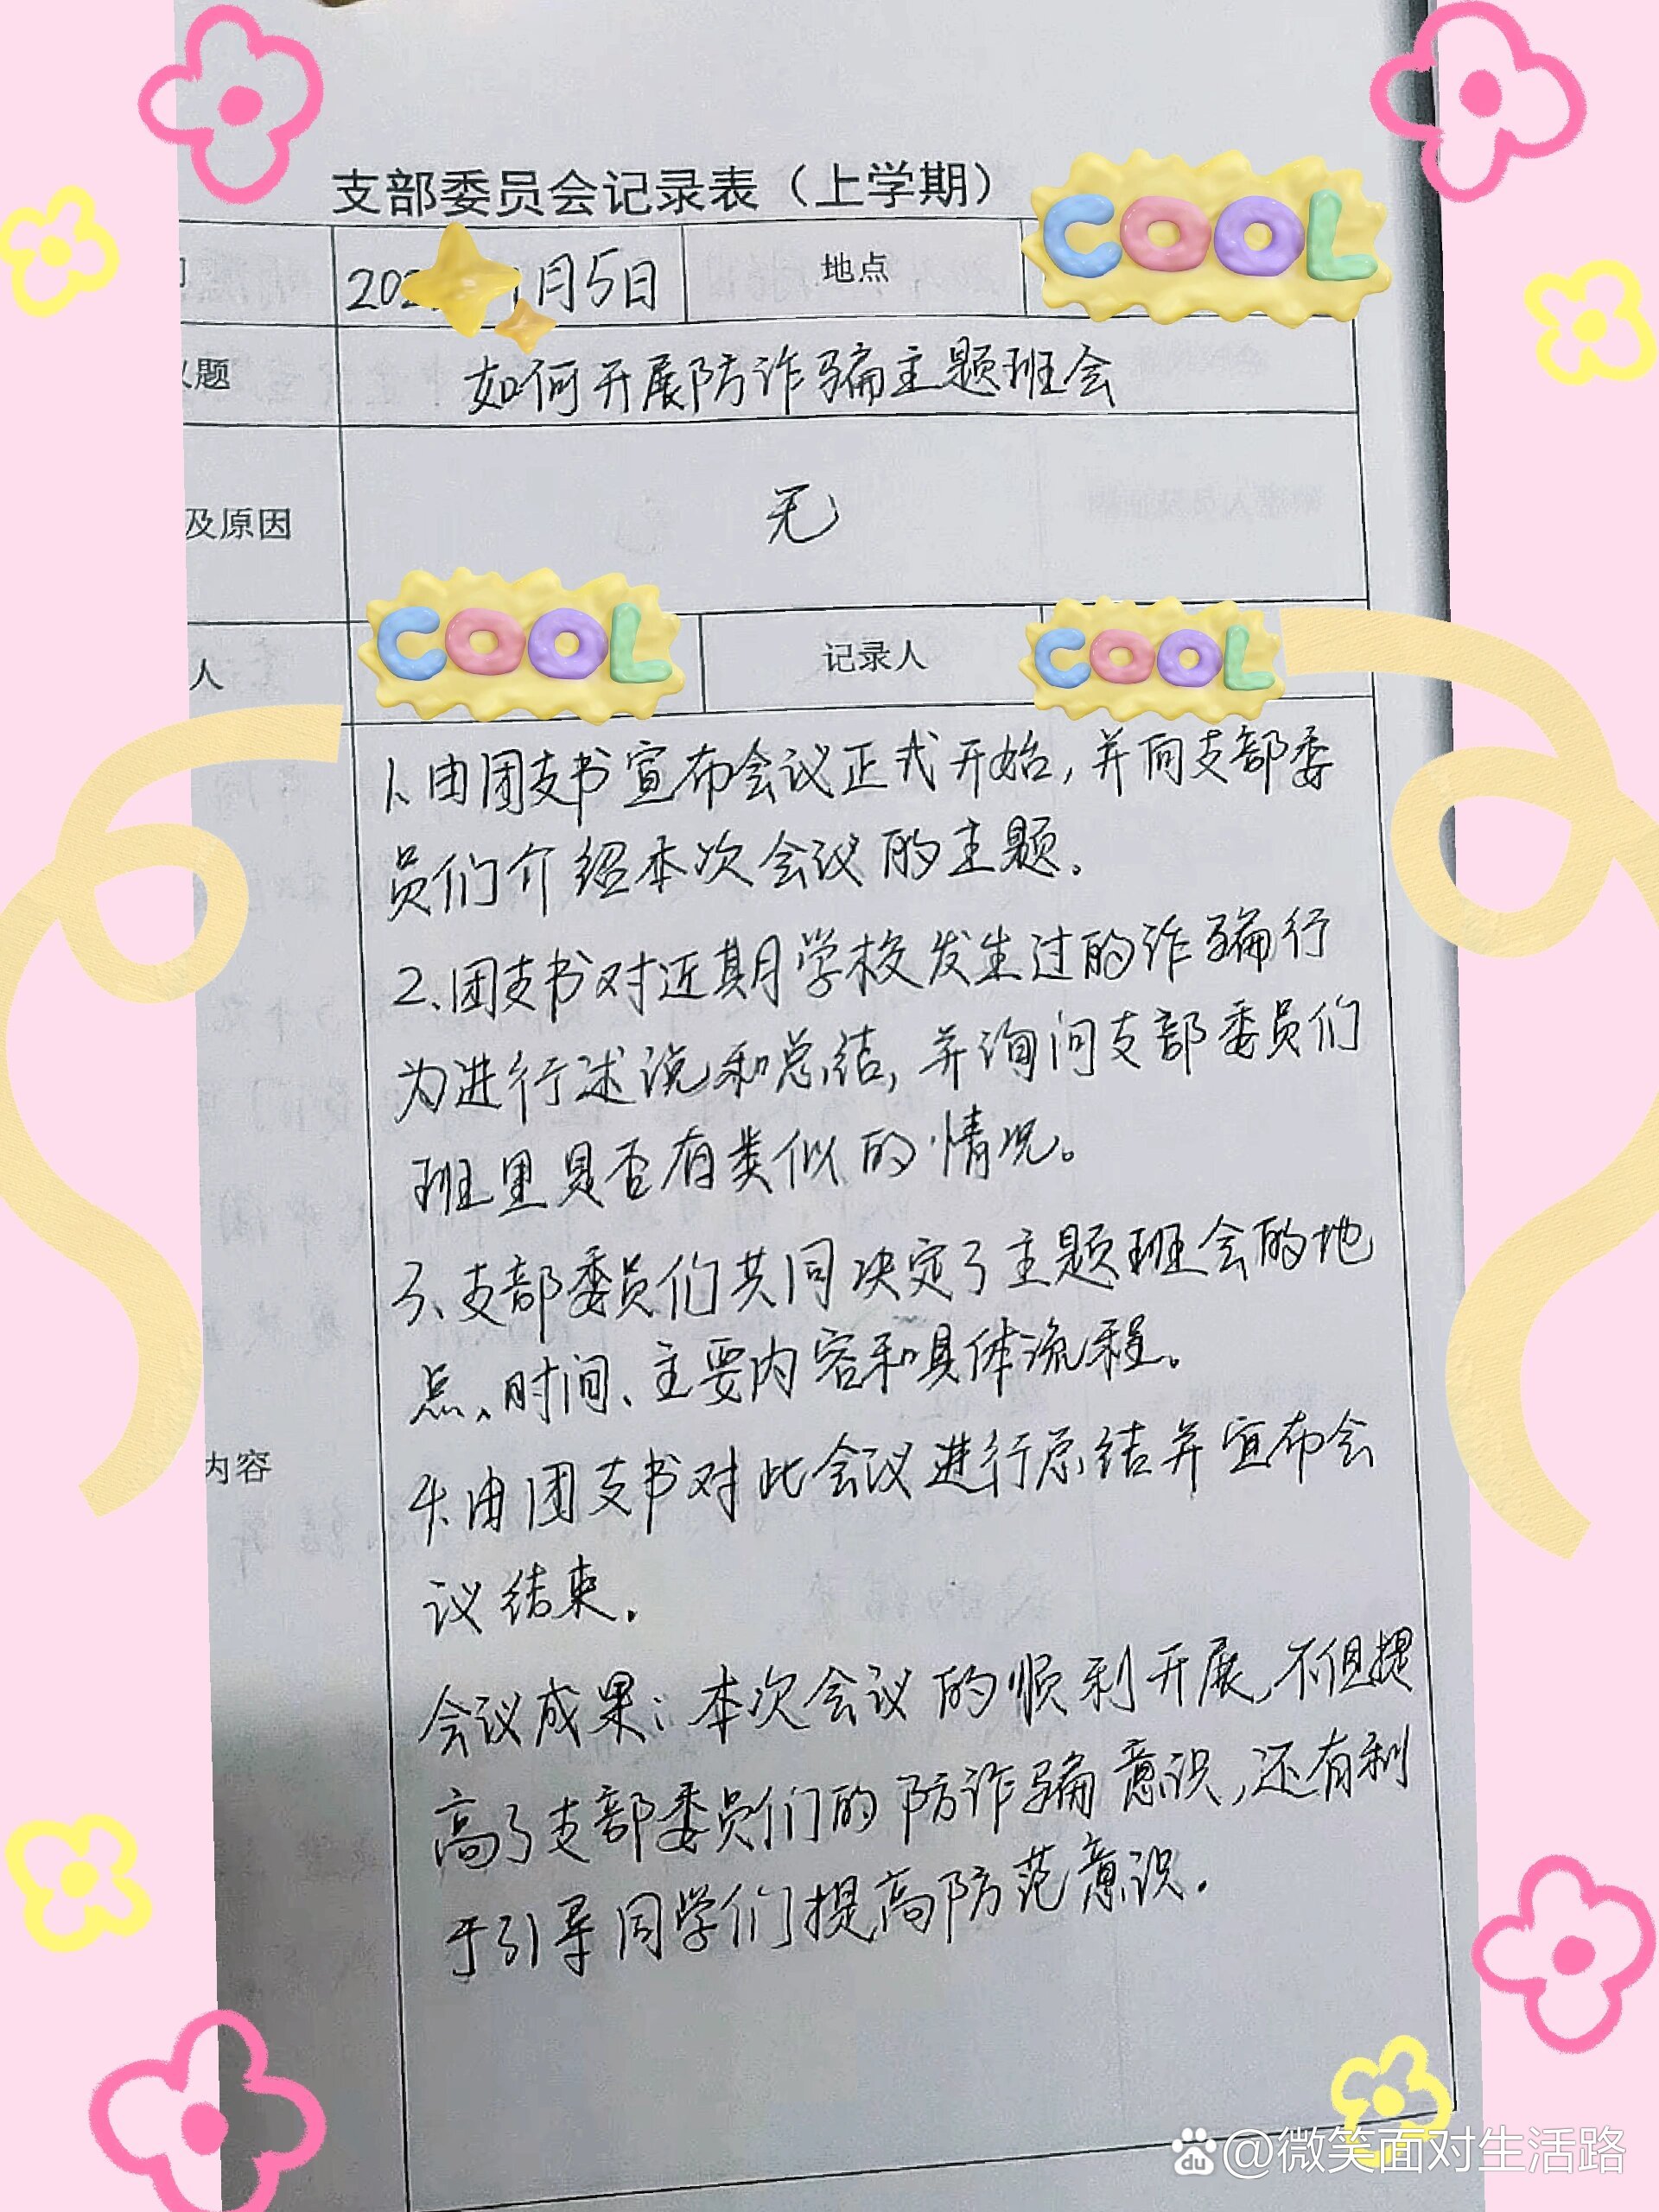 支部委员会记录表（上学期）
COOL
202 1月5日 地点
题 如何开展防诈骗主题班会
及原因 无
人 COOL 记录人 COOL
1、由团支书宣布会议正式开始，并向支部委
员们介绍本次会议的主题。
2、团支书对近期学校发生过的诈骗行
为进行述说和总结，并询问支部委员们
班里是否有类似的情况。
3、支部委员们共同决定了主题班会的地
点、时间、主要内容和具体流程。
内容
4、由团支书对此会议进行总结并宣布会
议结束。
会议成果：本次会议的顺利开展，不但提
高了支部委员们的防诈骗意识，还有利
于引导同学们提高防范意识。
du @微笑面对生活路